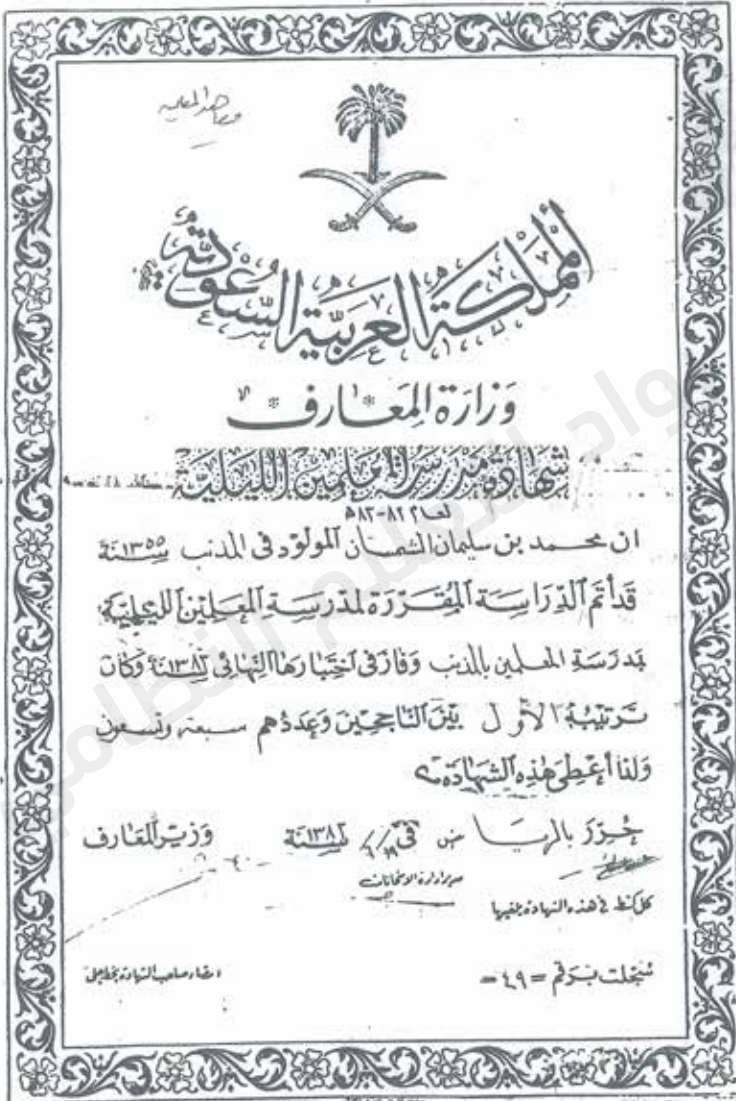 معاهد المعلمين
المملكة العربية السعودية
وزارة المعارف
شهادة مدرسة معلمين الليلية
لعام ٨٢-٨٣هـ
ان محمد بن سليمان الشمسان المولود في المذنب سنة ١٣٥٥
قد أتم الدراسة المقررة لمدرسة المعلمين الليلية
بمدرسة المعلمين بالمذنب وفاز في اختبارها النهائي لسنة وكان
ترتيبه الأول بين الناجحين وعددهم سبعة وتسعون
ولذا أعطي هذه الشهادة
حرر بالرياض في لسنة وزير المعارف
مدير ادارة الامتحانات
كل كشط في هذه الشهادة يلغيها
سجلت برقم =٤٩=
امضاء صاحب الشهادة بخط جلي
واد التعليم النظامي